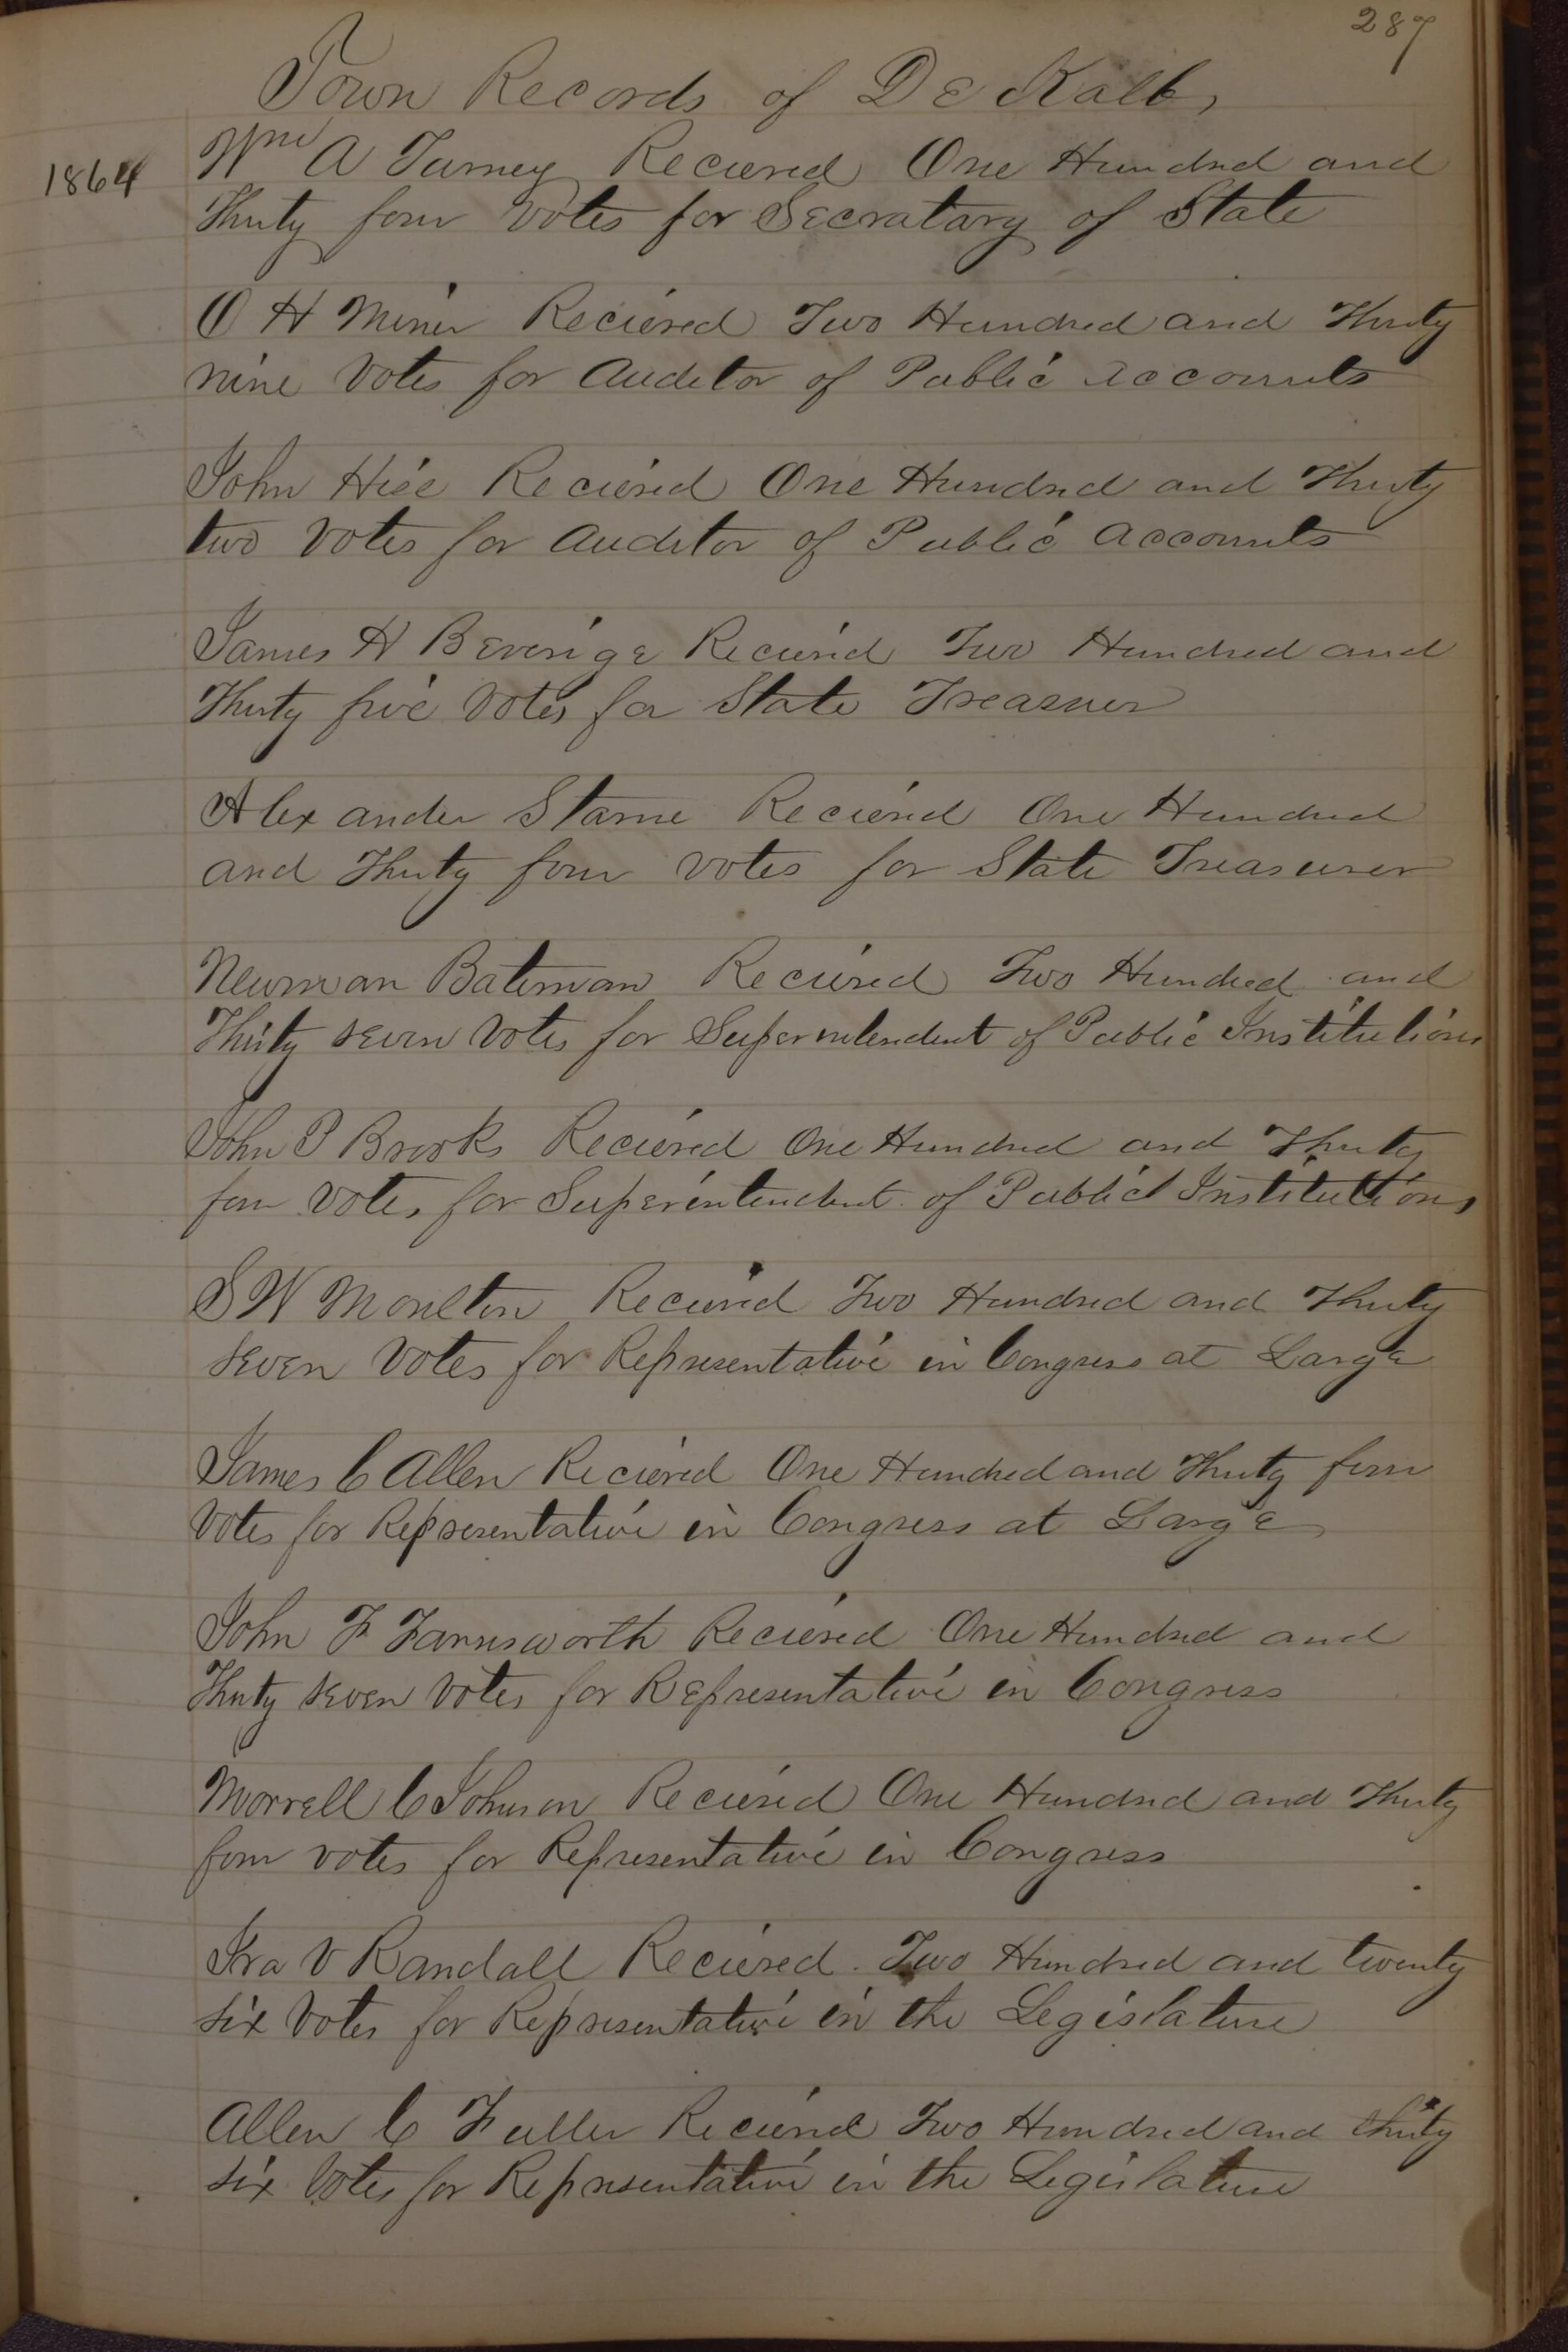 287
Town Records of De Kalb,
1864
Wm A Turney Recieved One Hundred and
Thirty four Votes for Secratary of State
O H Miner Recieved Two Hundred and Thirty
nine Votes for Auditor of Public Accounts
John Hise Recieved One Hundred and Thirty
two Votes for Auditor of Public Accounts
James H Beverige Recieved Two Hundred and
Thirty five Votes for State Treasurer
Alexander Starne Recieved One Hundred
and Thirty four votes for State Treasurer
Newman Bateman Recieved Two Hundred and
Thirty seven Votes for Superintendent of Public Institutions
John P Brooks Recieved One Hundred and Thirty
four Votes for Superintendent of Public Institutions
S W Moulton Recieved Two Hundred and Thirty
seven Votes for Representative in Congress at Large
James C Allen Recieved One Hundred and Thirty four
Votes for Representative in Congress at Large
John F Farnsworth Recieved One Hundred and
Thirty seven Votes for Representative in Congress
Morrell C Johnson Recieved One Hundred and Thirty
four votes for Representative in Congress
Ira V Randall Recieved Two Hundred and twenty
six Votes for Representative in the Legislature
Allen C Fuller Recieved Two Hundred and thirty
six Votes for Representative in the Legislature